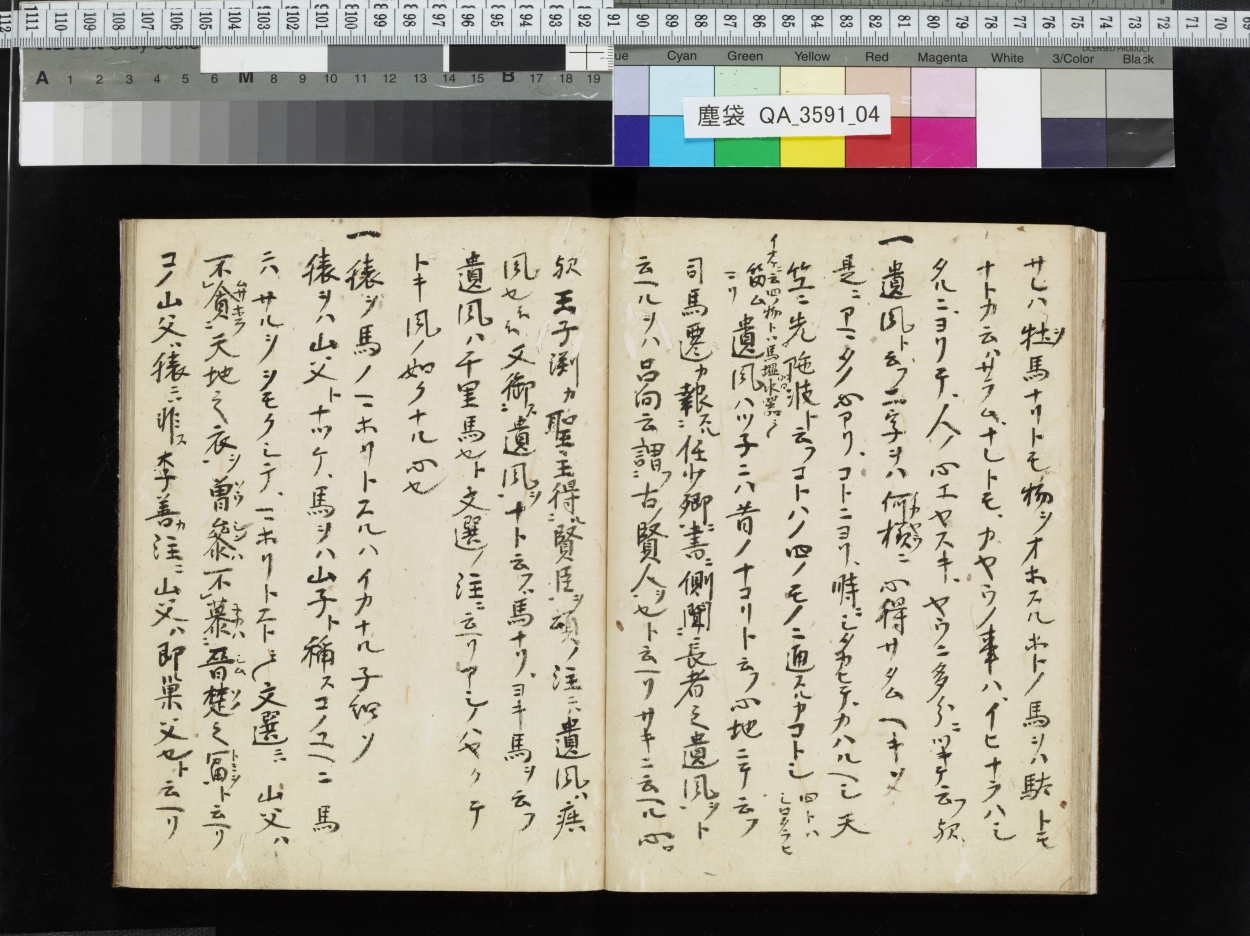 サレハ牡馬ナリトモ物ヲオホスルホトノ馬ヲハ駄トモ
ナトカ云ハサラム、ナレトモ、カヤウノ事ハ、イヒナラハシ
タルニヨリテ、人ノ心エヤスキ、ヤウニ多分ニツキテ云フ歟
一 遺風ト云フ二字ヲハ何様ニ心得サタムヘキソ
是ニアマタノ心アリ、コトニヨリ、時ニシタカヒテ、カハルヘシ天
竺ニ先陀波ト云フコトハノ四ノモノニ通スルカコトシ
遺風ハツ子ニハ昔ノナコリト云フ心地ニテ云フ
司馬遷カ報スル任少卿ニ書ニ側聞長者之遺風ヲト
云ヘルヲハ呂向云謂フ古ノ賢人ヲ也ト云ヘリサキニ云ヘル心ロ
歟王子渕カ聖主得ル賢臣ヲ頌ノ注ニハ遺風ハ疾
風也又御ス遺風ヲナト云ヘハ馬ナリ、ヨキ馬ヲ云フ
遺風ハ千里馬也ト文選ノ注ニ云ヘリアシノハヤクテ
トキ風ノ如クナル心也
一 猿ヲ馬ノマホリトスルハイカナル子細ソ
猿ヲハ山父トナツケ、馬ヲハ山子ト稱スコノユヘニ馬
ニハサルヲシモクシテ、マホリトスト云々文選ニ山父ハ
不貪天地之衣ヲ曽參ハ不慕晉楚之冨ト云ヘリ
コノ山父ハ猿ニハ非ス李善カ注ニ山父ハ即巣父也ト云ヘリ
塵袋 QA_3591_04
A 1 2 3 4 5 6 M 8 9 10 11 12 13 14 15 B 17 18 19
Cyan Green Yellow Red Magenta White 3/Color Black
LICENSED PRODUCT